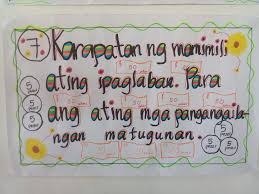 7 Karapatan ng mamimili
ating ipaglaban. Para
ang ating mga pangangaila-
ngan matugunan.
50
50
50
50
5
5
5
5
5